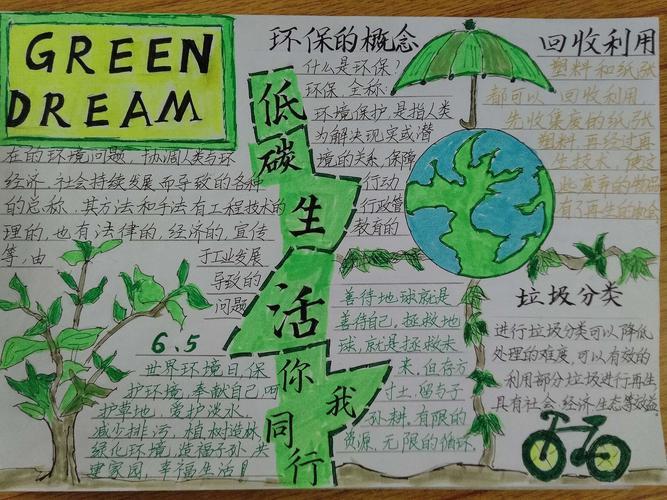 GREEN
DREAM
环保的概念
什么是环保?
环保全称:
环境保护,是指人类
为解决现实或潜
在的环境问题,协调人类与环
境的关系,保障
经济、社会持续发展而导致的各种
行动
的总称.其方法和手法有工程技术的
行政管
理的,也有法律的,经济的,宣传
教育的
等,由
于工业发展
导致的
问题
低碳生活你我同行
回收利用
塑料和纸张
都可以回收利用,
先收集废的纸张
塑料,再经过再
6.5
世界环境日,保
护环境,奉献自己,呵
护草地,爱护淡水,
减少排污,植树造林
绿化环境,造福子孙,共
建家园,幸福生活!
善待地球就是
善待自己,拯救地
球,就是拯救未
来,但存方
寸土,留与子
孙耕.有限的
资源,无限的循环.
垃圾分类
进行垃圾分类可以降低
处理的难度,可以有效的
利用部分垃圾进行再生
具有社会、经济、生态等效益